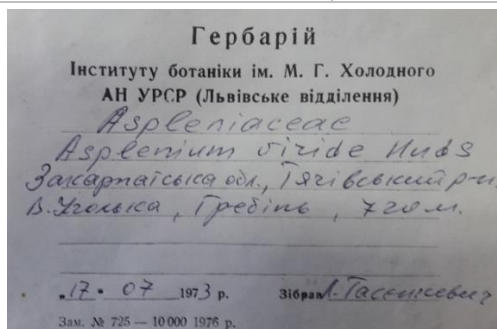 Гербарій
Інституту ботаніки ім. М. Г. Холодного
АН УРСР (Львівське відділення)
Aspleniaceae
Asplenium viride Huds
Закарпатська обл., Тячівський р-н,
В. Уголька, Гребінь, 720 м.
„17" 07 1973 р. Зібрав Л. Тасєнкевич
Зам. № 725 — 10 000 1976 р.